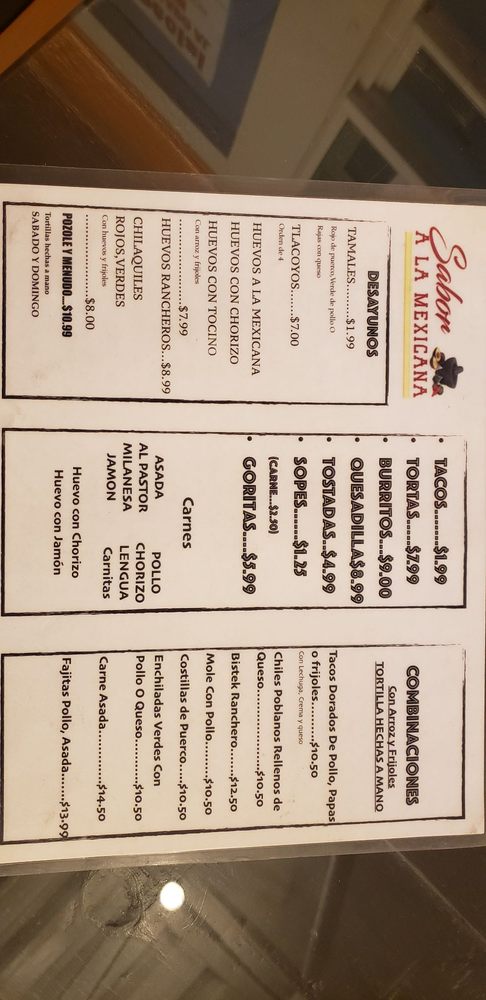 Sabor
A LA MEXICANA
DESAYUNOS
TAMALES.........$1.99
Rojo de puerco, Verde de pollo O
Rajas con queso
TLACOYOS........$7.00
Orden de 4
HUEVOS A LA MEXICANA
HUEVOS CON CHORIZO
HUEVOS CON TOCINO
Con arroz y frijoles
....................$7.99
HUEVOS RANCHEROS...$8.99
CHILAQUILES
ROJOS,VERDES
Con huevos y frijoles
....................$8.00
POZOLE Y MENUDO....$10.99
Tortillas hechas a mano
SABADO Y DOMINGO
• TACOS.........$1.99
• TORTAS......$7.99
• BURRITOS...$9.00
• QUESADILLA$8.99
• TOSTADAS..$4.99
• SOPES.......$1.25
(CARNE...$2.50)
• GORITAS....$5.99
Carnes
ASADA POLLO
AL PASTOR CHORIZO
MILANESA LENGUA
JAMON Carnitas
Huevo con Chorizo
Huevo con Jamón
COMBINACIONES
Con Arroz y Frijoles
TORTILLA HECHAS A MANO
Tacos Dorados De Pollo, Papas
o frijoles...........$10.50
Con Lechuga, Crema y queso
Chiles Poblanos Rellenos de
Queso....................$10.50
Bistek Ranchero.......$12.50
Mole Con Pollo........$10.50
Costillas de Puerco.....$10.50
Enchiladas Verdes Con
Pollo O Queso.........$10.50
Carne Asada..............$14.50
Fajitas Pollo, Asada.......$13.99